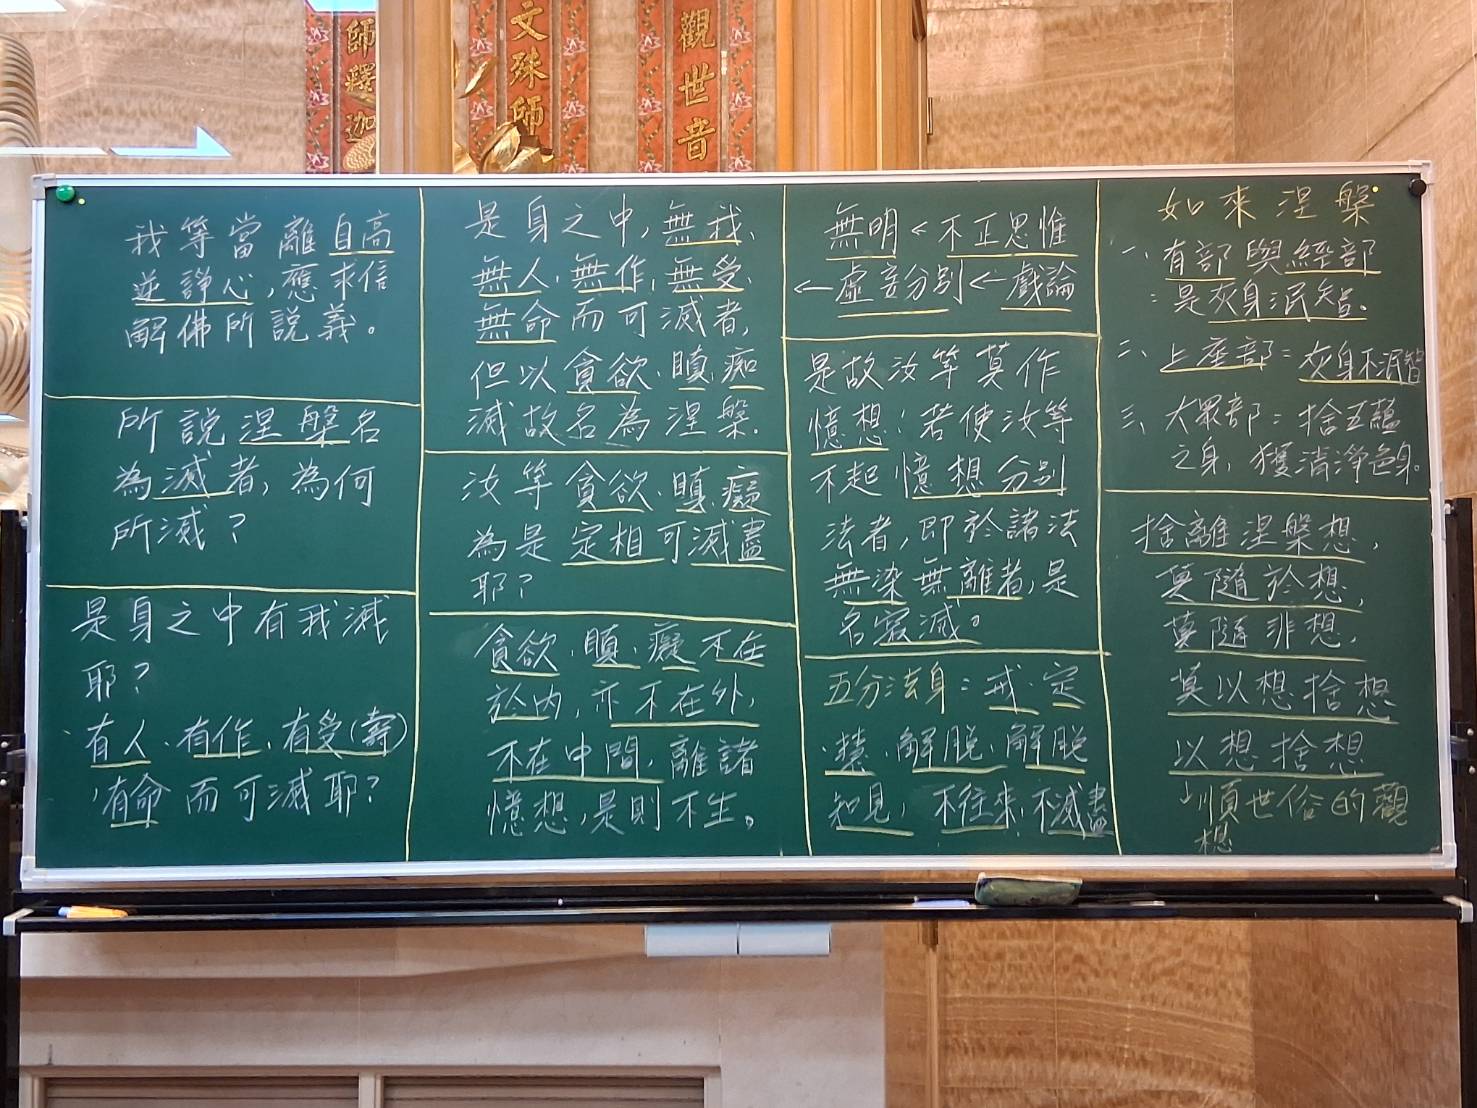 師釋迦
文殊師
觀世音
我等當離自高
逆諍心，應求信
解佛所說義。
所說涅槃名
為滅者，為何
所滅？
是身之中有我滅
耶？
有人、有作、有受(壽)
，有命而可滅耶？
是身之中，無我、
無人、無作、無受、
無命而可滅者，
但以貪欲、瞋、痴
滅故名為涅槃．
汝等貪欲、瞋、癡
為是定相可滅盡
耶？
貪欲、瞋、癡不在
於內，亦不在外，
不在中間，離諸
憶想，是則不生。
無明←不正思惟
←虛妄分別←戲論
是故汝等莫作
憶想！若使汝等
不起憶想分別
法者，即於諸法
無染無離者，是
名寂滅。
五分法身：戒、定
、慧、解脫、解脫
知見，不往來，不滅盡
如來涅槃
一、有部與經部
：是灰身泯智。
二、上座部：灰身不泯智
三、大眾部：捨五蘊
之身，獲清淨色身。
捨離涅槃想，
莫隨於想，
莫隨非想，
莫以想捨想
以想捨想
順世俗的觀
想